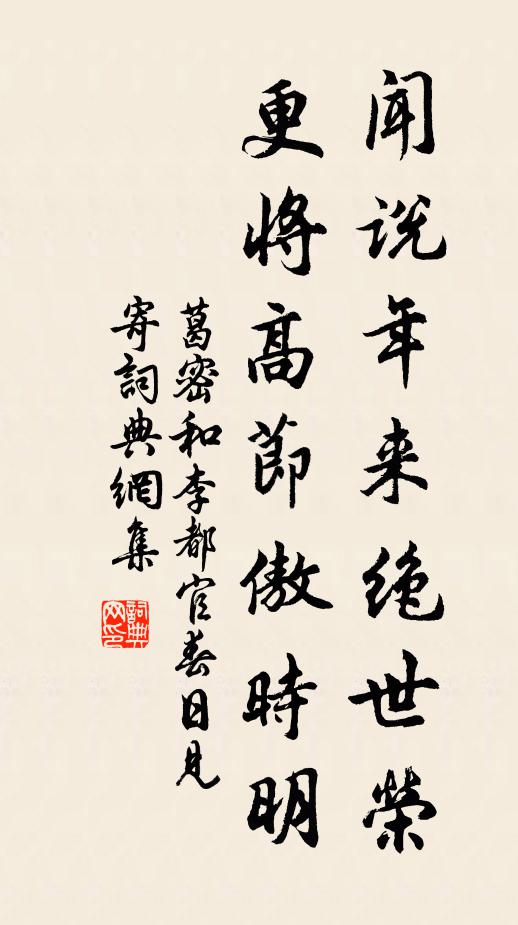 闻说年来绝世荣
更将高節傲時明
葛密和李都官春日見
寄詞典網集
詞典
网印